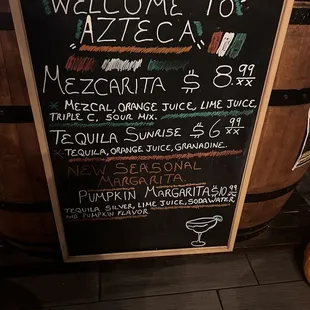 WELCOME TO
AZTECA
MEZCARITA $ 8.99
xx
* MEZCAL, ORANGE JUICE, LIME JUICE,
TRIPLE C, SOUR MIX.
TEQUILA SUNRISE $ 6.99
xx
* TEQUILA, ORANGE JUICE, GRANADINE.
NEW SEASONAL
MARGARITA
PUMPKIN MARGARITA $10.99
xx
TEQUILA SILVER, LIME JUICE, SODA WATER
AND PUMPKIN FLAVOR.